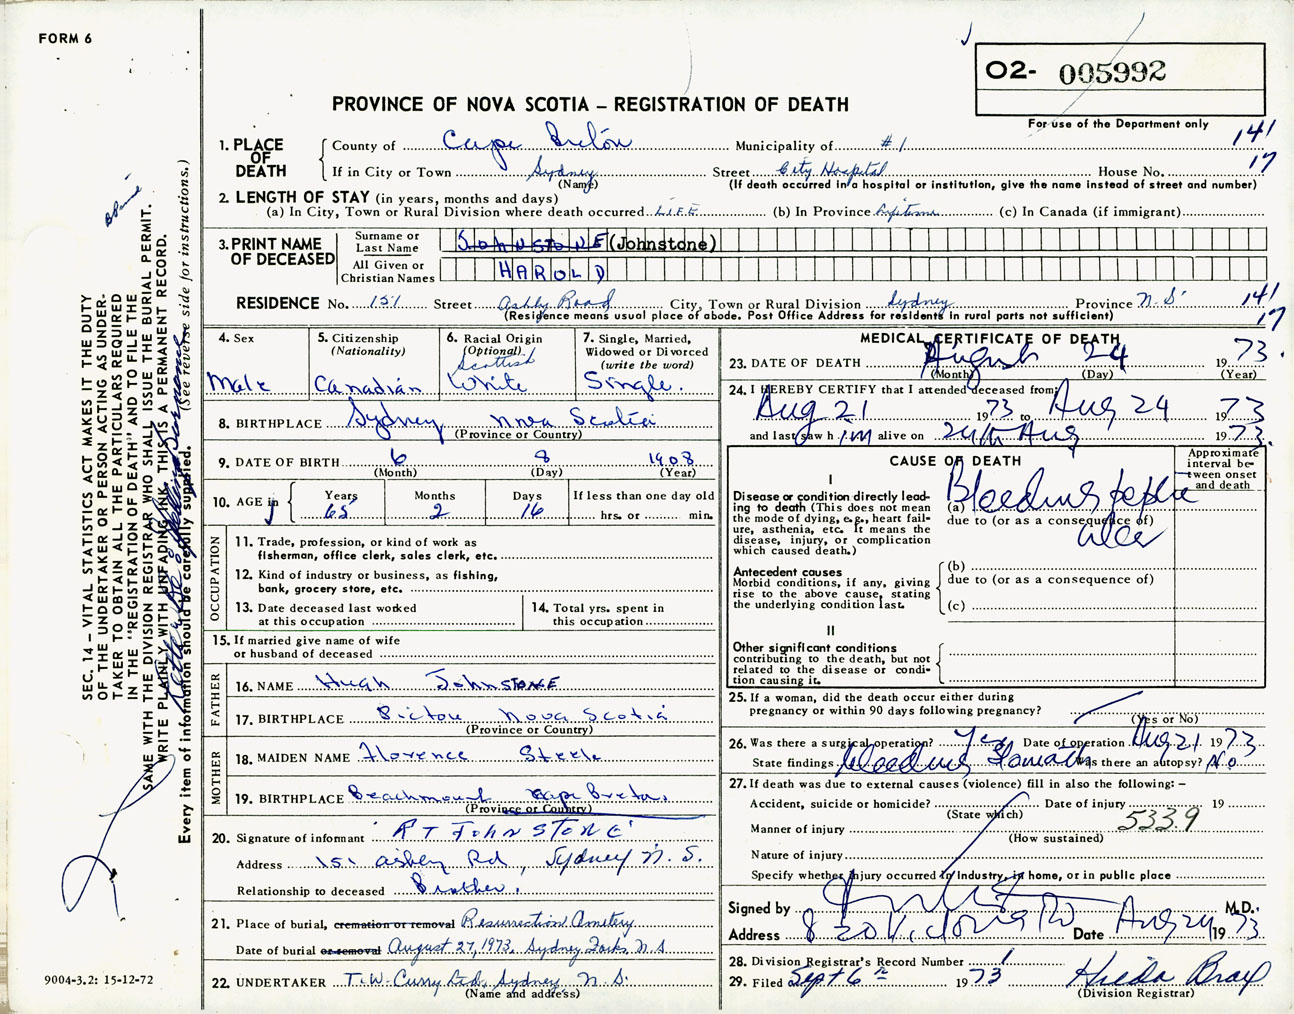 FORM 6
O2- 005992
For use of the Department only
PROVINCE OF NOVA SCOTIA – REGISTRATION OF DEATH
141
17
1. PLACE OF DEATH
County of Cape Breton Municipality of #1
If in City or Town Sydney Street City Hospital House No.
(Name) (If death occurred in a hospital or institution, give the name instead of street and number)
2. LENGTH OF STAY (in years, months and days)
(a) In City, Town or Rural Division where death occurred LIFE (b) In Province Lifetime (c) In Canada (if immigrant)
3. PRINT NAME OF DECEASED
Surname or Last Name JOHNSTONE (Johnstone)
All Given or Christian Names HAROLD
RESIDENCE No. 151 Street Ashby Road City, Town or Rural Division Sydney Province N.S. 141
(Residence means usual place of abode. Post Office Address for residents in rural parts not sufficient) 17
4. Sex Male
5. Citizenship (Nationality) Canadian
6. Racial Origin (Optional) Scottish White
7. Single, Married, Widowed or Divorced (write the word) Single.
8. BIRTHPLACE Sydney Nova Scotia
(Province or Country)
9. DATE OF BIRTH 6 8 1908
(Month) (Day) (Year)
10. AGE in Years 65 Months 2 Days 16 If less than one day old hrs. or min.
OCCUPATION
11. Trade, profession, or kind of work as fisherman, office clerk, sales clerk, etc.
12. Kind of industry or business, as fishing, bank, grocery store, etc.
13. Date deceased last worked at this occupation
14. Total yrs. spent in this occupation
15. If married give name of wife or husband of deceased
FATHER
16. NAME Hugh Johnstone
17. BIRTHPLACE Pictou Nova Scotia
(Province or Country)
MOTHER
18. MAIDEN NAME Florence Steele
19. BIRTHPLACE Beachmount Cape Breton
(Province or Country)
20. Signature of informant R T JOHNSTONE
Address 151 Ashby Rd, Sydney N.S.
Relationship to deceased Brother.
21. Place of burial, cremation or removal Resurrection Cemetery
Date of burial or removal August 27, 1973, Sydney Forks, N.S.
22. UNDERTAKER T.W. Curry Ltd., Sydney N.S.
(Name and address)
MEDICAL CERTIFICATE OF DEATH
23. DATE OF DEATH August 24 1973.
(Month) (Day) (Year)
24. I HEREBY CERTIFY that I attended deceased from:
Aug 21 1973 to Aug 24 1973
and last saw him alive on 24th Aug 1973.
CAUSE OF DEATH
Approximate interval between onset and death
I
Disease or condition directly leading to death (This does not mean the mode of dying, e.g., heart failure, asthenia, etc. It means the disease, injury, or complication which caused death.)
(a) Bleeding peptic ulcer
due to (or as a consequence of)
Antecedent causes
Morbid conditions, if any, giving rise to the above cause, stating the underlying condition last.
(b)
due to (or as a consequence of)
(c)
II
Other significant conditions
contributing to the death, but not related to the disease or condition causing it.
25. If a woman, did the death occur either during pregnancy or within 90 days following pregnancy?
(Yes or No)
26. Was there a surgical operation? Yes Date of operation Aug 21 1973
State findings bleeding stomach Was there an autopsy? No
27. If death was due to external causes (violence) fill in also the following: –
Accident, suicide or homicide? Date of injury 19
(State which)
Manner of injury 5339
(How sustained)
Nature of injury
Specify whether injury occurred in industry, in home, or in public place
Signed by M.D.
Address 820 Victoria Rd Date Aug 24 1973
28. Division Registrar's Record Number 1
29. Filed Sept 6th 1973 Hilda Bray
(Division Registrar)
SEC. 14 – VITAL STATISTICS ACT MAKES IT THE DUTY
OF THE UNDERTAKER OR PERSON ACTING AS UNDER-
TAKER TO OBTAIN ALL THE PARTICULARS REQUIRED
IN THE "REGISTRATION OF DEATH" AND TO FILE THE
SAME WITH THE DIVISION REGISTRAR WHO SHALL ISSUE THE BURIAL PERMIT.
WRITE PLAINLY WITH UNFADING INK. THIS IS A PERMANENT RECORD.
Every item of information should be carefully supplied. (See reverse side for instructions.)
9004-3.2: 15-12-72